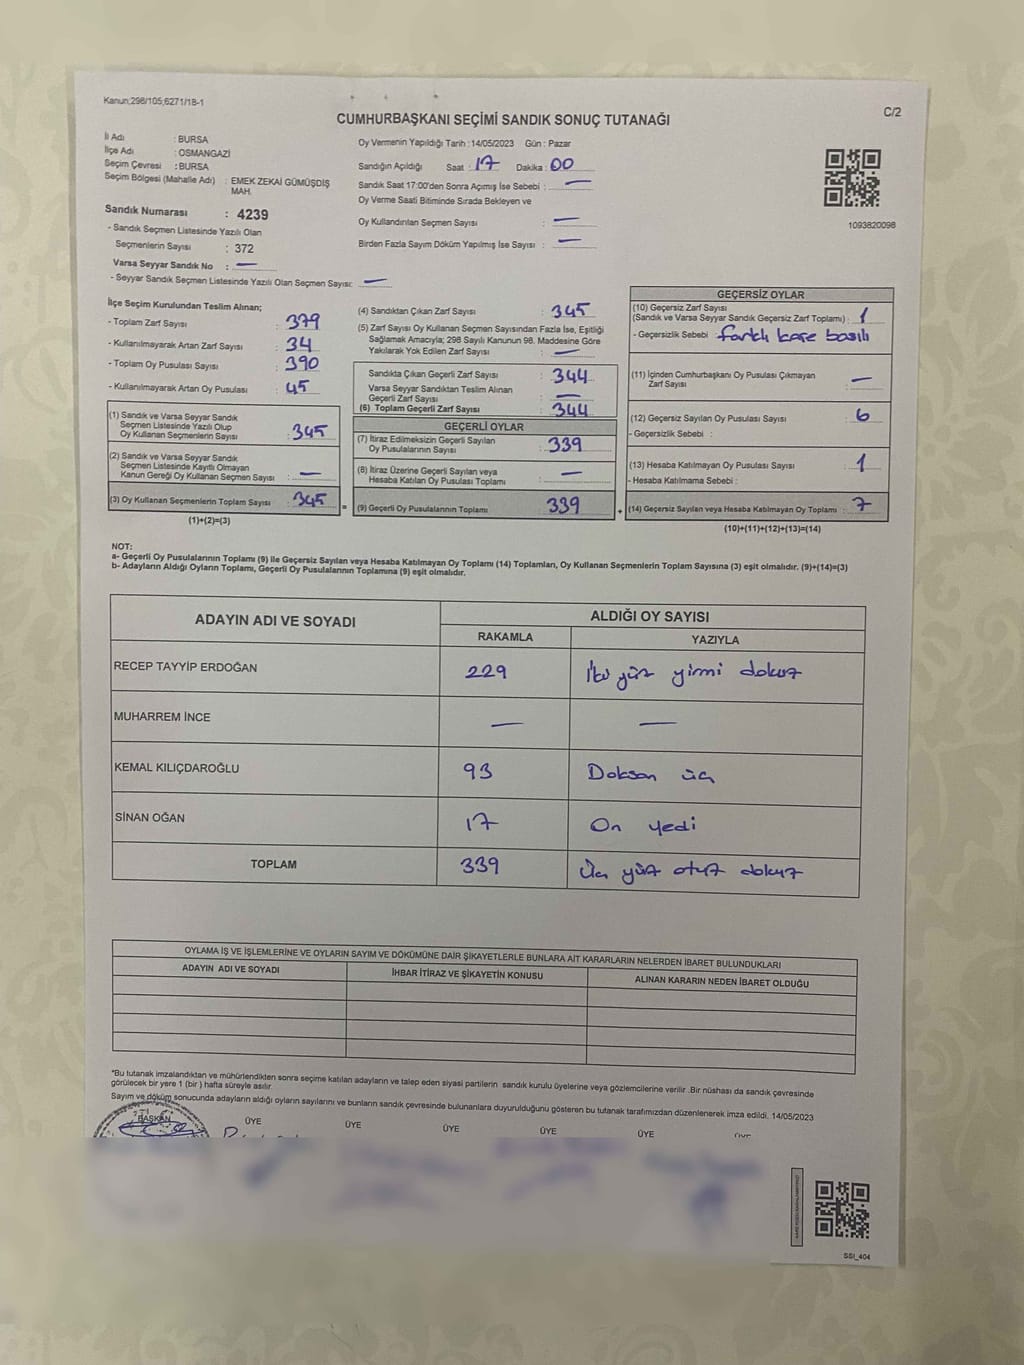 Kanun;298/105;6271/18-1
C/2
CUMHURBAŞKANI SEÇİMİ SANDIK SONUÇ TUTANAĞI
İl Adı : BURSA
İlçe Adı : OSMANGAZİ
Seçim Çevresi : BURSA
Seçim Bölgesi (Mahalle Adı) : EMEK ZEKAİ GÜMÜŞDİŞ
MAH.
Sandık Numarası : 4239
- Sandık Seçmen Listesinde Yazılı Olan
Seçmenlerin Sayısı : 372
Varsa Seyyar Sandık No : —
- Seyyar Sandık Seçmen Listesinde Yazılı Olan Seçmen Sayısı: —
Oy Vermenin Yapıldığı Tarih : 14/05/2023 Gün : Pazar
Sandığın Açıldığı Saat : 17 Dakika : 00
Sandık Saat 17:00'den Sonra Açımış İse Sebebi : —
Oy Verme Saati Bitiminde Sırada Bekleyen ve
Oy Kullandırılan Seçmen Sayısı : —
Birden Fazla Sayım Döküm Yapılmış İse Sayısı : —
1093820098
İlçe Seçim Kurulundan Teslim Alınan;
- Toplam Zarf Sayısı : 379
- Kullanılmayarak Artan Zarf Sayısı : 34
- Toplam Oy Pusulası Sayısı : 390
- Kullanılmayarak Artan Oy Pusulası : 45
(1) Sandık ve Varsa Seyyar Sandık
Seçmen Listesinde Yazılı Olup
Oy Kullanan Seçmenlerin Sayısı : 345
(2) Sandık ve Varsa Seyyar Sandık
Seçmen Listesinde Kayıtlı Olmayan
Kanun Gereği Oy Kullanan Seçmen Sayısı : —
(3) Oy Kullanan Seçmenlerin Toplam Sayısı : 345
(1)+(2)=(3)
(4) Sandıktan Çıkan Zarf Sayısı : 345
(5) Zarf Sayısı Oy Kullanan Seçmen Sayısından Fazla İse, Eşitliği
Sağlamak Amacıyla; 298 Sayılı Kanunun 98. Maddesine Göre
Yakılarak Yok Edilen Zarf Sayısı : —
Sandıkta Çıkan Geçerli Zarf Sayısı : 344
Varsa Seyyar Sandıktan Teslim Alınan
Geçerli Zarf Sayısı : —
(6) Toplam Geçerli Zarf Sayısı : 344
GEÇERLİ OYLAR
(7) İtiraz Edilmeksizin Geçerli Sayılan
Oy Pusulalarının Sayısı : 339
(8) İtiraz Üzerine Geçerli Sayılan veya
Hesaba Katılan Oy Pusulası Toplamı : —
= (9) Geçerli Oy Pusulalarının Toplamı : 339
GEÇERSİZ OYLAR
(10) Geçersiz Zarf Sayısı
(Sandık ve Varsa Seyyar Sandık Geçersiz Zarf Toplamı) : 1
- Geçersizlik Sebebi : farklı kaşe basılı
(11) İçinden Cumhurbaşkanı Oy Pusulası Çıkmayan
Zarf Sayısı : —
(12) Geçersiz Sayılan Oy Pusulası Sayısı : 6
- Geçersizlik Sebebi :
(13) Hesaba Katılmayan Oy Pusulası Sayısı : 1
- Hesaba Katılmama Sebebi :
+ (14) Geçersiz Sayılan veya Hesaba Katılmayan Oy Toplamı : 7
(10)+(11)+(12)+(13)=(14)
NOT:
a- Geçerli Oy Pusulalarının Toplamı (9) ile Geçersiz Sayılan veya Hesaba Katılmayan Oy Toplamı (14) Toplamları, Oy Kullanan Seçmenlerin Toplam Sayısına (3) eşit olmalıdır. (9)+(14)=(3)
b- Adayların Aldığı Oyların Toplamı, Geçerli Oy Pusulalarının Toplamına (9) eşit olmalıdır.
ADAYIN ADI VE SOYADI
ALDIĞI OY SAYISI
RAKAMLA YAZIYLA
RECEP TAYYİP ERDOĞAN 229 İki yüz yirmi dokuz
MUHARREM İNCE — —
KEMAL KILIÇDAROĞLU 93 Doksan üç
SİNAN OĞAN 17 On yedi
TOPLAM 339 Üç yüz otuz dokuz
OYLAMA İŞ VE İŞLEMLERİNE VE OYLARIN SAYIM VE DÖKÜMÜNE DAİR ŞİKAYETLERLE BUNLARA AİT KARARLARIN NELERDEN İBARET BULUNDUKLARI
ADAYIN ADI VE SOYADI İHBAR İTİRAZ VE ŞİKAYETİN KONUSU ALINAN KARARIN NEDEN İBARET OLDUĞU
*Bu tutanak imzalandıktan ve mühürlendikten sonra seçime katılan adayların ve talep eden siyasi partilerin sandık kurulu üyelerine veya gözlemcilerine verilir .Bir nüshası da sandık çevresinde
görülecek bir yere 1 (bir ) hafta süreyle asılır.
Sayım ve döküm sonucunda adayların aldığı oyların sayılarını ve bunların sandık çevresinde bulunanlara duyurulduğunu gösteren bu tutanak tarafımızdan düzenlenerek imza edildi. 14/05/2023
BAŞKAN ÜYE ÜYE ÜYE ÜYE ÜYE ÜYE
SSI_404